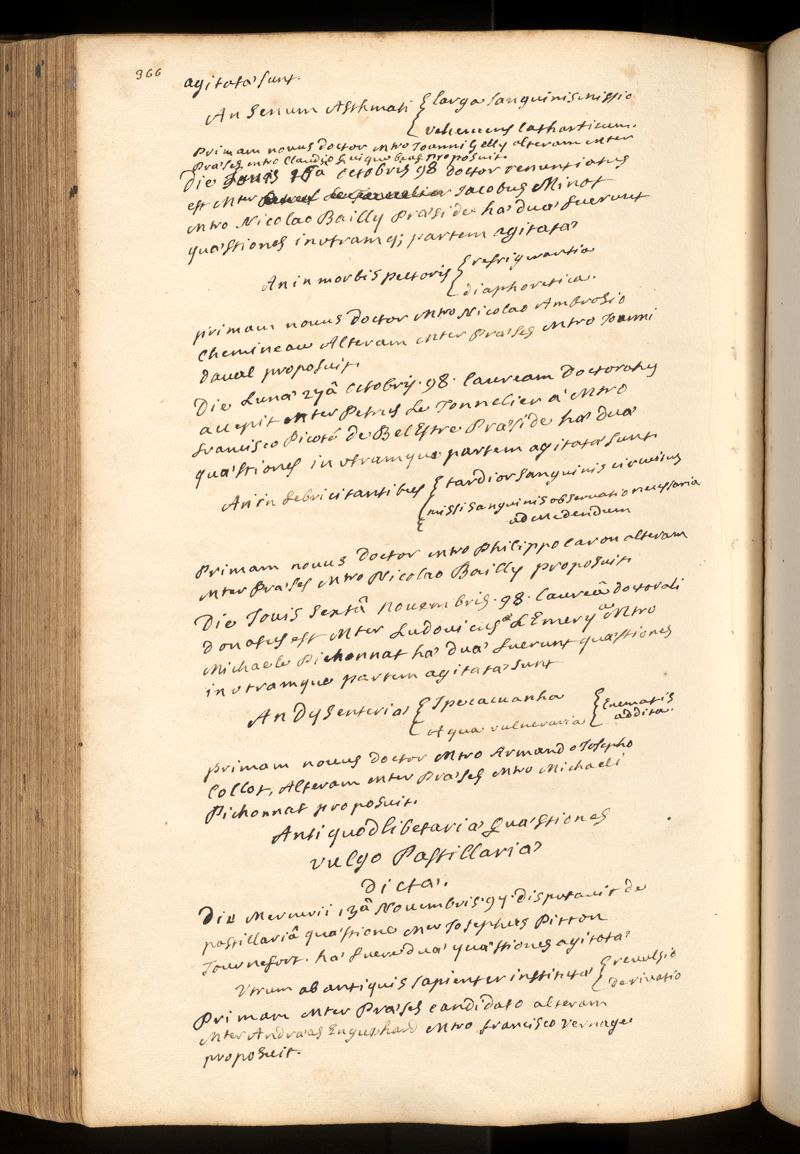 366
agitatæ sunt.
An Senum Asthmati { larga sanguinis missio
{ vehemens Catharticum.
Primam novus Doctor Mtro Joanni Gelly alteram Mter
Præses Mtro Claudio proposuit.
Die Jovis Octobris 98 Doctor renuntiatus
est Mter Jacobus Minot
Mtro Nicolao Bailly Præside hæ duæ fuerunt
quæstiones in utramq; partem agitatæ
An in morbis pectoris { refrigerantia
{ diaphoretica.
primam novus Doctor Mtro Nicolao Ambrosio
Chemineau Alteram Mter Præses Mtro Joanni
Daval proposuit.
Die Lunæ 27â Octobris. 98. lauream Doctoratus
accepit Mter Petrus Le Tonnelier a Mtro
francisco Picoté de BelEstre Præside hæ duæ
quæstiones in utramque partem agitatæ sunt.
An in febricitantibus { tardior sanguinis circuitus
{ missi sanguinis observatio necessaria
ad Medendum
Primam novus Doctor Mtro Philippo Caron alteram
Mter Præses Mtro Nicolao Bailly proposuit.
Die Jovis Sextâ Novembris. 98. laureâ doctorali
donatus est Mter Ludovicus L'Emery a Mtro
Michaele Pichonnat hæ duæ fuerunt quæstiones
in utramque partem agitatæ sunt
An Dysenteriæ { Ipecacuanha
{ Aqua vulneraria { Enematis
addita.
primam novus Doctor Mtro Armando Josepho
Collot, Alteram Mter Præses Mtro Michaeli
Pichonnat proposuit.
Antiquodlibetariæ Quæstiones
vulgo Pastillariæ
Dictæ.
Die Mercurii 13â Novembris. 97. disputavit de
pastillariâ quæstione Mter Josephus Pitton
Tournefort. hæ fuere duæ quæstiones agitatæ
Utrum ab antiquis sapienter instituta { revulsio
{ derivatio
Primam Mter Præses candidato alteram
Mter Andræas Enguehard Mtro francisco Vernage
proposuit.